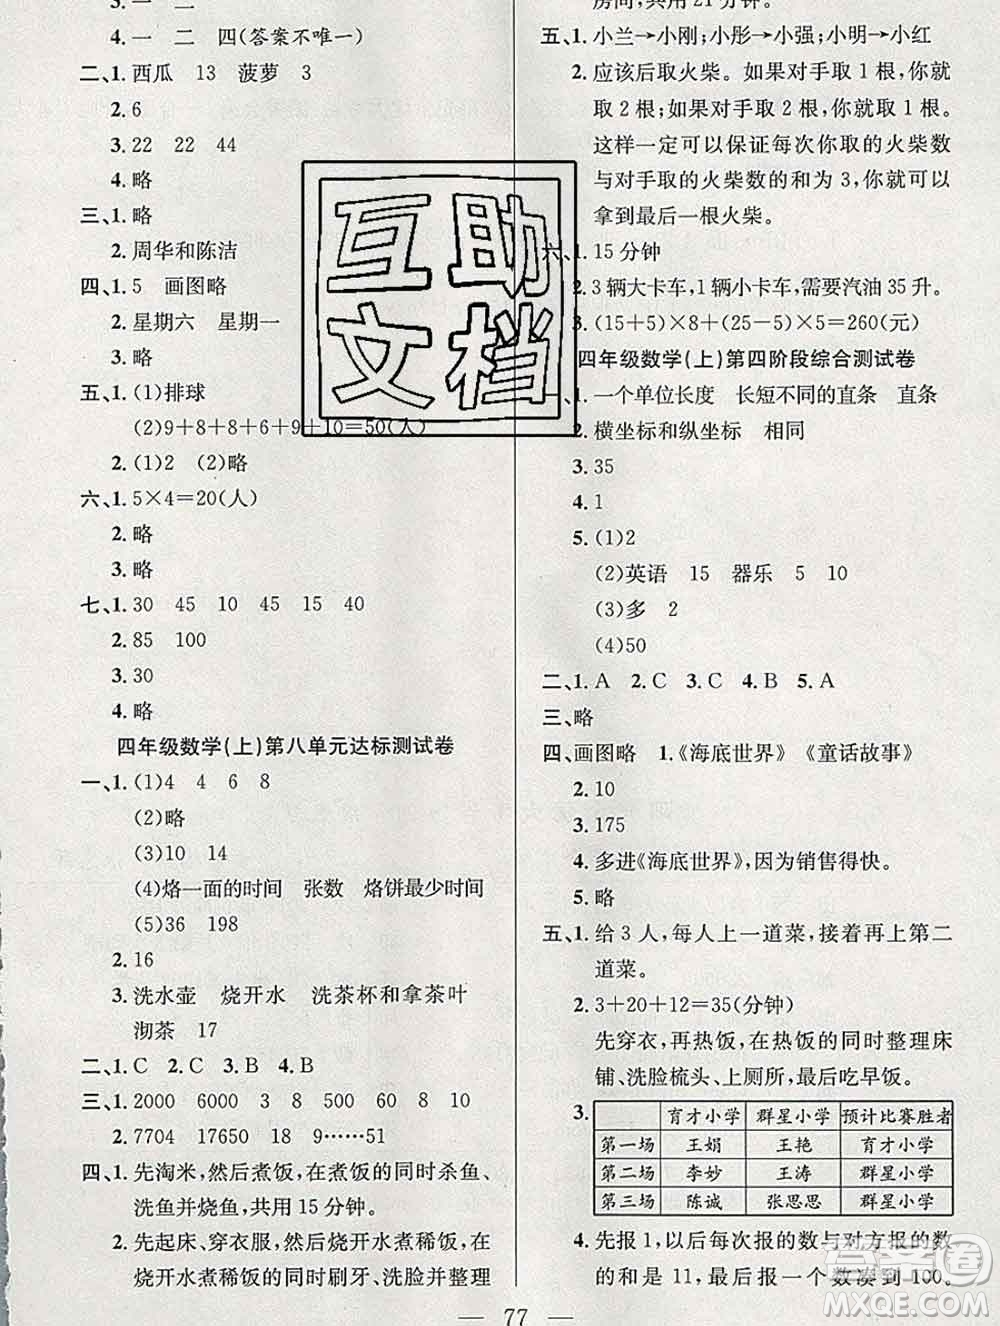 4.一 二 四(答案不唯一)
二、1.西瓜 13 菠萝 3
2.6
3.22 22 44
4.略
三、1.略
2.周华和陈洁
四、1.5 画图略
2.星期六 星期一
3.略
五、1.(1)排球
(2)9+8+8+6+9+10=50(人)
2.(1)2 (2)略
六、1.5×4=20(人)
2.略
3.略
七、1.30 45 10 45 15 40
2.85 100
3.30
4.略
四年级数学(上)第八单元达标测试卷
一、1.(1)4 4 6 8
(2)略
(3)10 14
(4)烙一面的时间 张数 烙饼最少时间
(5)36 198
2.16
3.洗水壶 烧开水 洗茶杯和拿茶叶
沏茶 17
二、1.C 2.C 3.B 4.B
三、1.2000 6000 3 120 8 10
2.7704 17650 18 9……51
四、1.先淘米,然后煮饭,在煮饭的同时杀鱼、
洗鱼并烧鱼,共用15分钟。
2.先起床、穿衣服,然后烧开水煮稀饭,
在烧开水煮稀饭的同时刷牙、洗脸和整理
房间,共用21分钟。
五、1.小兰→小刚;小彤→小强;小明→小红
2.应该后取火柴。如果对手取1根,你就
取2根;如果对手取2根,你就取1根。
这样一定可以保证每次你取的火柴数
与对手取的火柴数的和为3,你就可以
拿到最后一根火柴。
六、1.15分钟
2.3辆大卡车,1辆小卡车,需要汽油35升。
3.(15+5)×8+(25-5)×5=260(元)
四年级数学(上)第四阶段综合测试卷
一、1.一个单位长度 长短不同的直条 直条
2.横坐标和纵坐标 相同
3.35
4.1
5.(1)2
(2)英语 15 器乐 5 10
(3)多 2
(4)50
二、1.A 2.C 3.C 4.B 5.A
三、略
四、画图略 1.《海底世界》 《童话故事》
2.10
3.175
4.多进《海底世界》,因为销售得快。
5.略
五、1.给3人,每人上一道菜,接着再上第二
道菜。
2.3+20+12=35(分钟)
先穿衣,再热饭,在热饭的同时整理床
铺、洗脸梳头、上厕所,最后吃早饭。
3.
育才小学 群星小学 预计比赛胜者
第一场 王娟 王艳 育才小学
第二场 李妙 王涛 群星小学
第三场 陈诚 张思思 群星小学
4.先报1,以后每次报的数与对方报的数
的和是11,最后报一个数凑到100。
77
互助
文档
答案圈
MXQE.COM